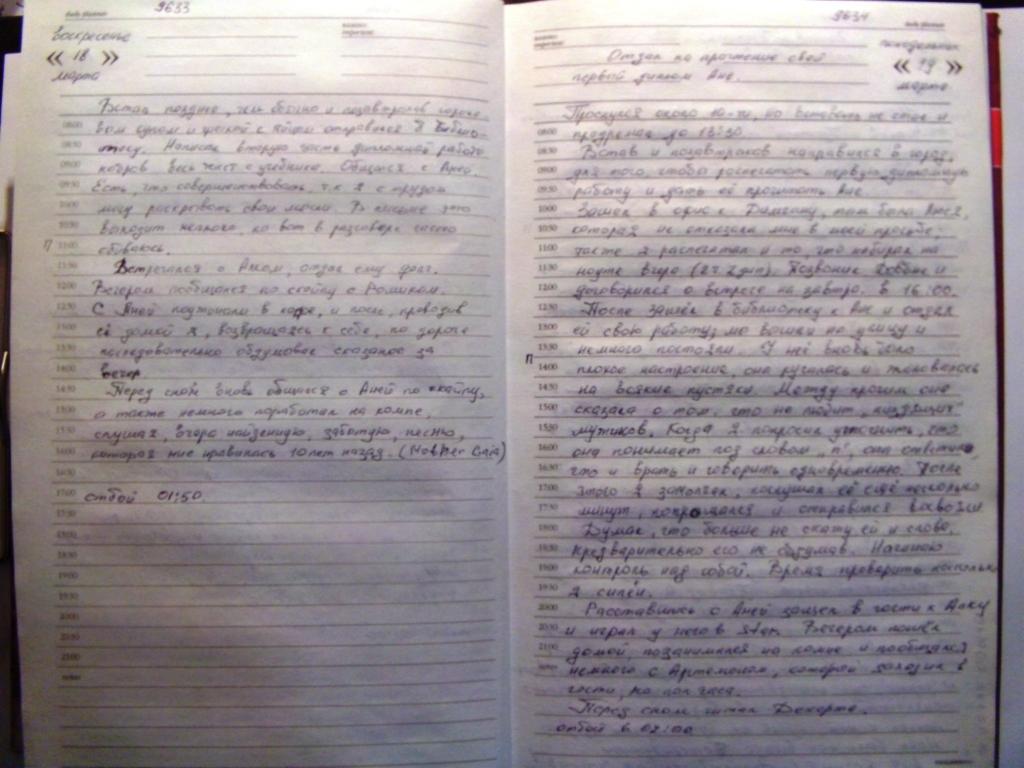 9633
воскресенье
« 18 »
марта
Встал позднее, чем обычно и позавтракав
вом одном и отправился в библио-
теку. Написал вторую часть дипломной работы
набрав весь текст с учебника. Общался с Аней.
Есть, что совершенствовать, т.к я с трудом
могу раскрывать свои мысли. В письме это
выходит неплохо, но вот в разговоре часто
сбиваюсь.
Встречался с Алком, отдал ему долг.
Вечером пообщался по скайпу с Ромиком.
С Аней посидели в кафе, и после, проводив
её домой я, возвращаясь к себе, по дороге
последовательно обдумывал сказанное за
вечер.
Перед сном вновь общался с Аней по скайпу,
а также немного поработал на компе,
слушая, вчера найденную, забытую, песню,
которая мне нравилась 10 лет назад.
отбой 01:50.
9634
понедельник
« 19 »
марта
Отдал на прочтение свой
первый диплом Ане.
Проснулся около 10-ти, но вставать не стал и
продремал до 13:30.
Встав и позавтракав направился в город,
для того, чтобы распечатать первую дипломную
работу и дать её прочитать Ане.
Зашёл в офис к там была Аня,
которая не отказала мне в моей просьбе;
также я распечатал и то, что набирал на
ноуте вчера Позвонил и
договорился о встрече на завтра. в 16:00.
После зашёл в библиотеку к Ане и отдал
ей свою работу; мы вышли на улицу и
немного постояли. У неё вновь было
плохое настроение, она ругалась и жаловалась
на всякие пустяки. Между прочим она
сказала о том, что не любит
мужиков. Когда я попросил уточнить, что
она понимает под словом „п", она ответила,
что и врать и говорить одновременно. После
этого я замолчал, послушал её ещё несколько
минут, попрощался и отправился
Думаю, что больше не скажу ей и слова,
предварительно его не обдумав. Начинаю
контроль над собой. Время проверить насколько
я силён.
Расставшись с Аней зашёл в гости к Алку
и играл у него в Вечером пошёл
домой, позанимался на компе и пообщался
немного с Артёмом, который заходил в
гости, на пол часа.
Перед сном читал Декарта.
отбой в 02:00